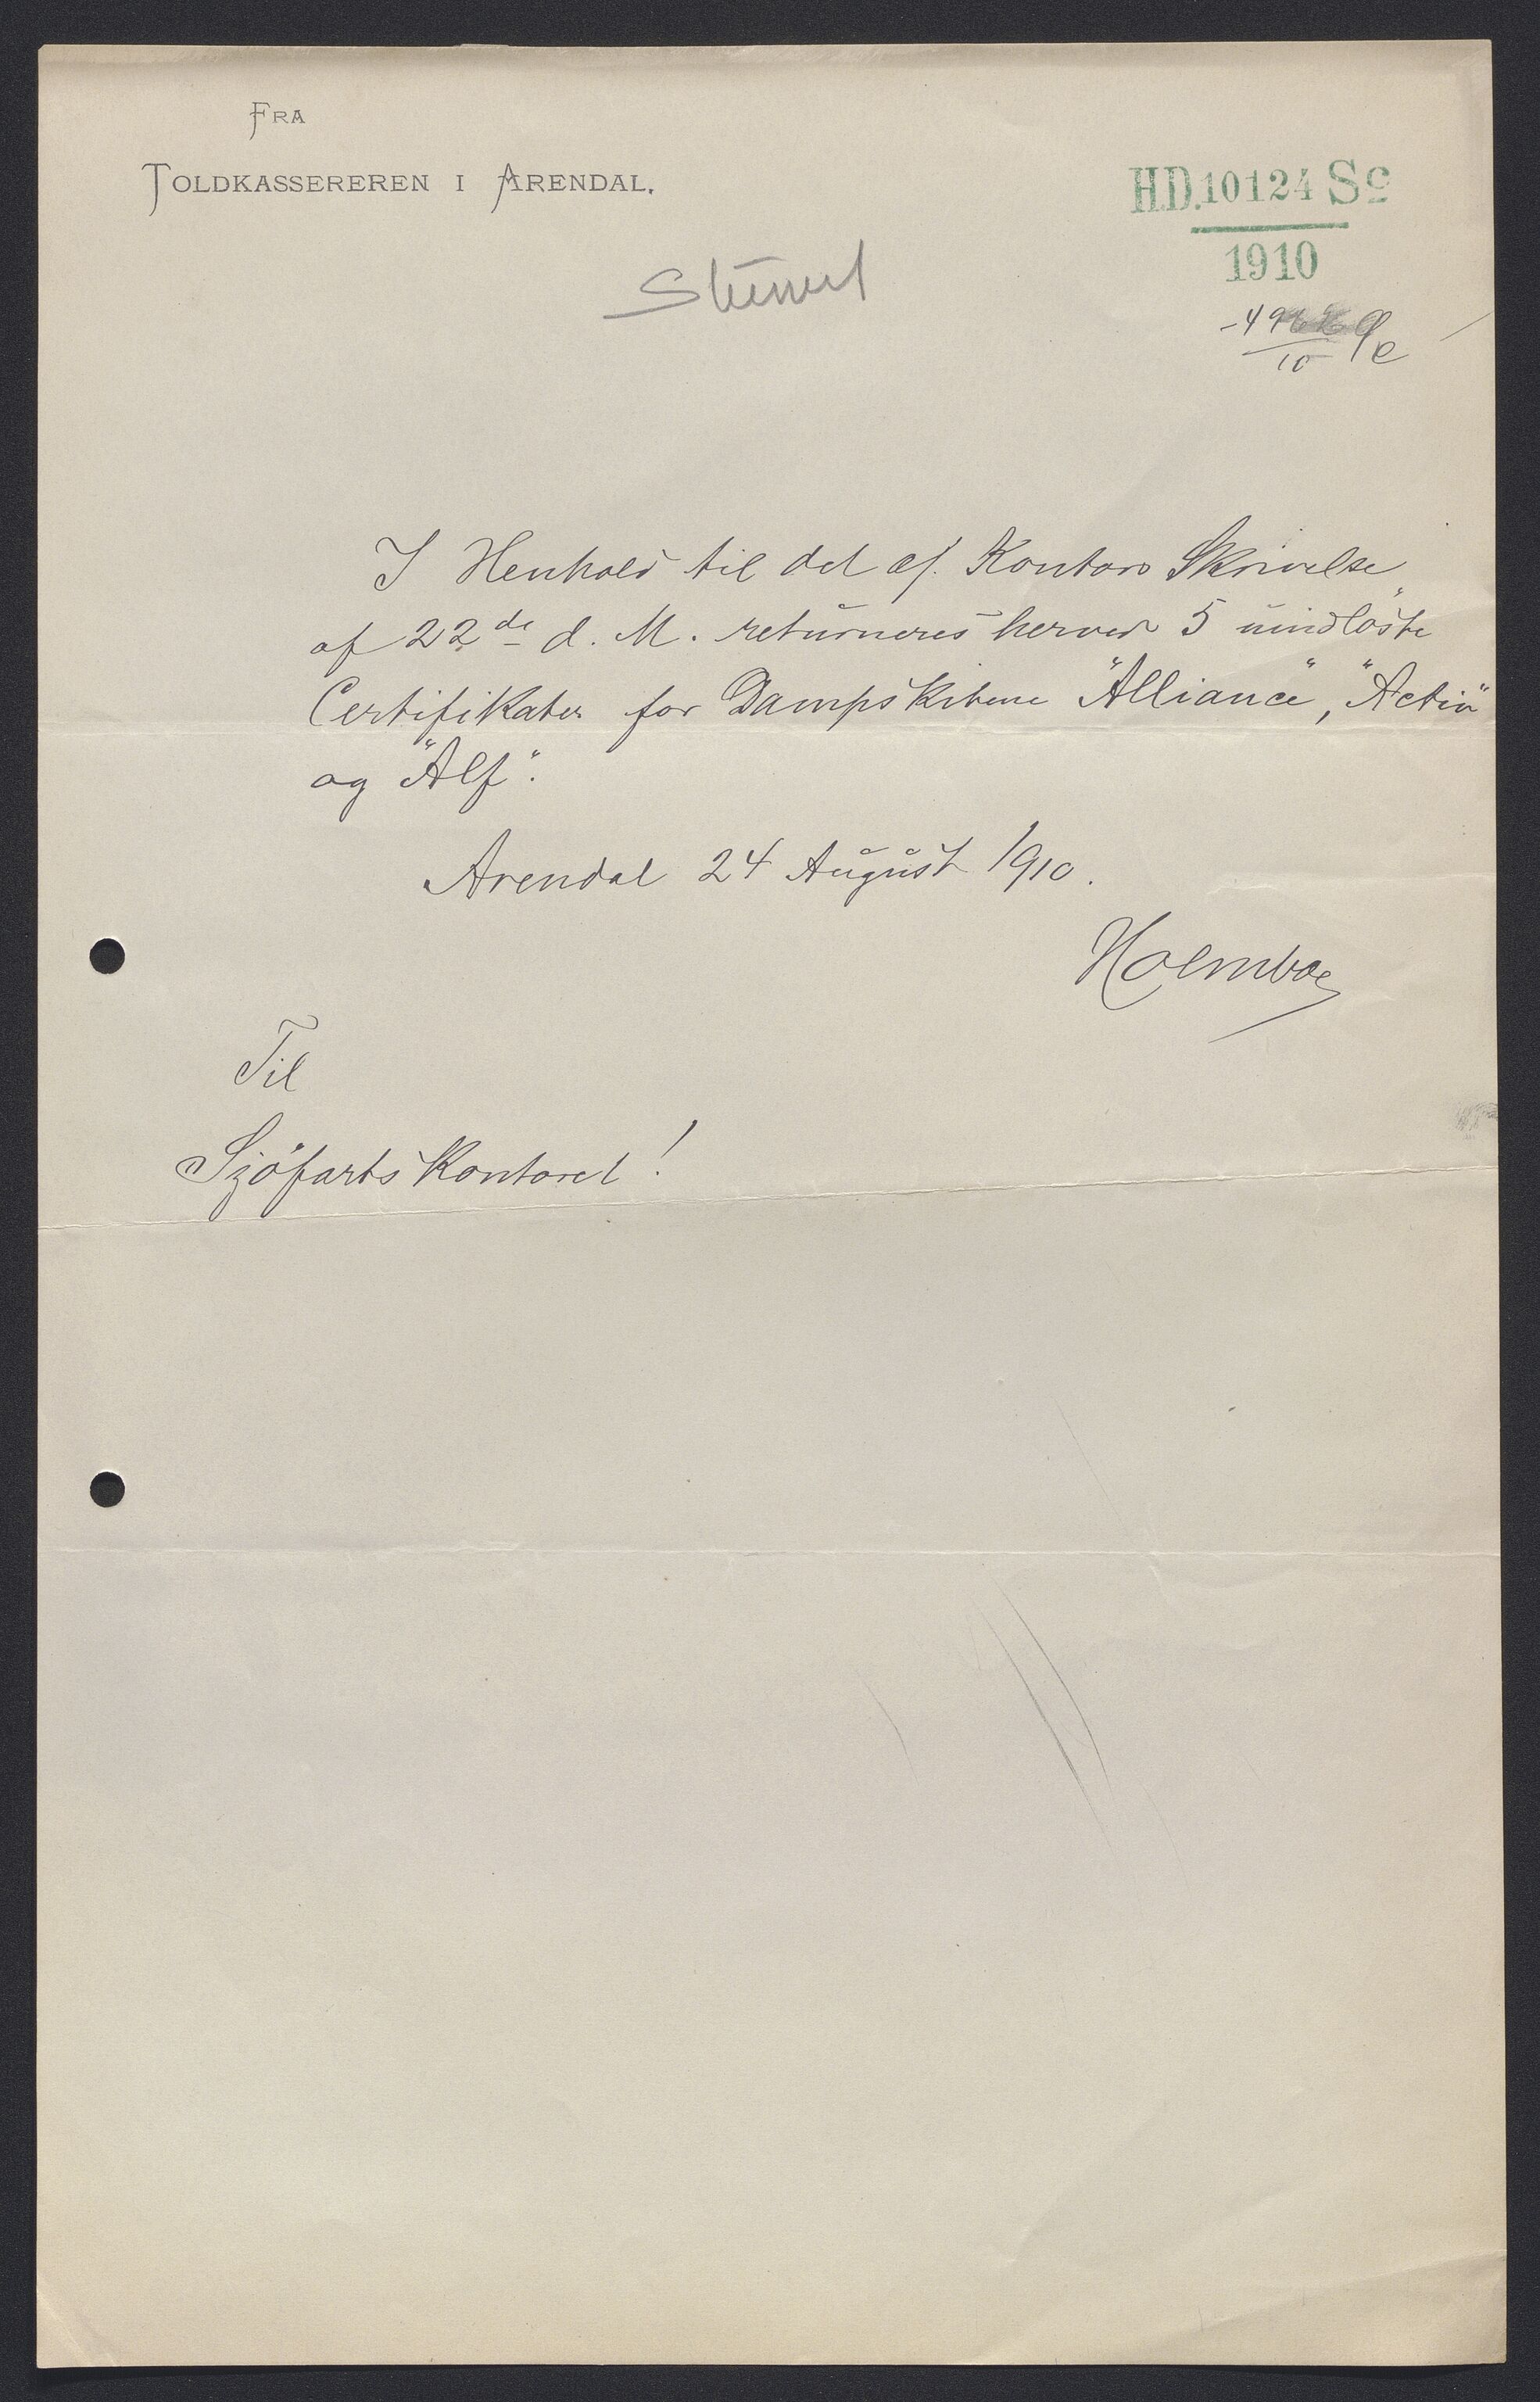 FRA
TOLDKASSEREREN I ARENDAL.
H.D.10124 Sc
1910
10
I Henhold til det ærl. Kontors Skrivelse
af 22de d. M. returneres herved 5 uindløste
Certifikater for Dampskibene "Alliance", "Activ"
og "Alf".
Arendal 24 August 1910.
Holmboe
Til
Sjöfartskontoret!